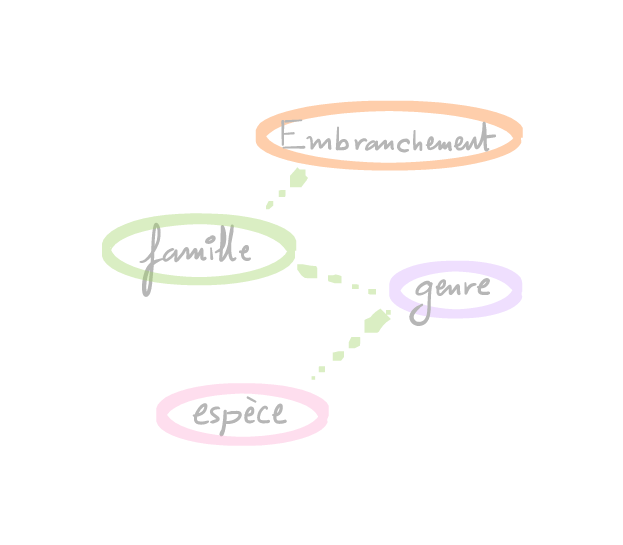 Embranchement
famille
genre
espèce